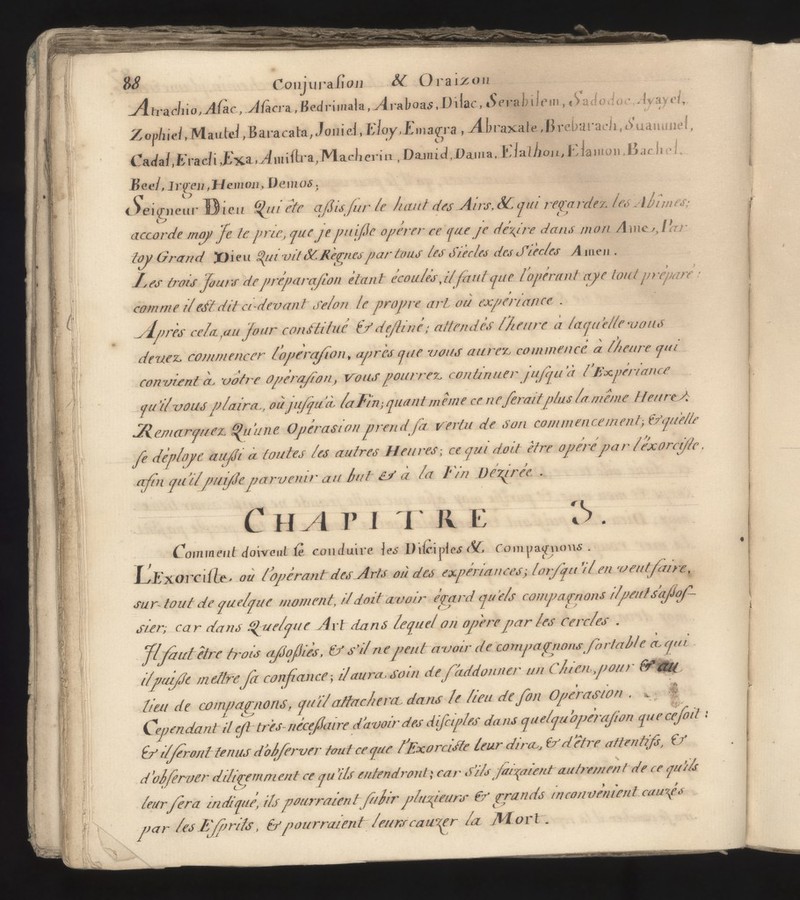 88 Conjurasion & Oraizon
Atrachio, Asac, Asacra, Bedrimala, Araboas, Dilac, Serabilem, Sadodoc, Ayayel,
Zophiel, Mautel, Baracata, Joniel, Eloy, Emagra, Abraxate, Brebarach, Suanunel,
Cadal, Eracli, Exa, Amistra, Macherin, Damid, Dama, Elalhou, Elamon, Bachel.
Beel, Irgen, Hemon, Demos;
Seigneur Dieu Qui éte assis, sur le haut des Airs, & qui regardez les Abîmes;
accorde moy Je te prie, que je puisse opérer ce que je dézire dans mon Ame, Par
toy Grand Dieu Qui vit & Règnes par tous les Siècles des Siècles Amen.
Les trois Jours de préparasion étant écoulés, il faut que l'opérant aye tout préparé:
comme il est dit ci-devant selon le propre art où expériance.
Après cela, au Jour constitué & destiné; attendés l'heure à laquelle vous
devez commencer l'opèrasion, après que vous aurez commencé à l'heure qui
convient à vôtre opèrasion, vous pourrez continuer jusqu'à l'Expériance
qu'il vous plaira, où jusqu'à la Fin; quant même ce ne serait plus la même Heure.
Remarquez Qu'une Opérasion prend sa vertu de son commencement; & qu'elle
se déploye aussi à toutes les autres Heures; ce qui doit être opéré par l'éxorciste,
afin qu'il puisse parvenir au but & à la Fin Dézirée.
CHAPITRE 3.
Comment doivent se conduire les Disciples & Compagnons.
L'Exorciste, où l'opérant des Arts où des expériances; lorsqu'il en veut faire,
sur-tout de quelque moment, il doit avoir égard quels compagnons il peut s'assos-
sier; car dans Quelque Art dans lequel on opère par les Cercles.
Il faut être trois assossiés, & s'il ne peut avoir de compagnons sortable à qui
il puisse mettre sa confiance; il aura soin de s'addonner un Chien, pour & au
lieu de compagnons, qu'il attachera dans le lieu de son Opérasion.
Cependant il est très-nécessaire d'avoir des disciples dans quelqu'opèrasion que ce soit:
& il seront tenus d'observer tout ce que l'Exorciste leur dira, & d'être attentifs, &
d'observer diligemment ce qu'ils entendront; car s'ils faizaient autrement de ce qu'ils
leur sera indiqué, ils pourraient subir pluzieurs & grands inconvénient cauzés
par les Esprits, & pourraient leurs cauzer la Mort.